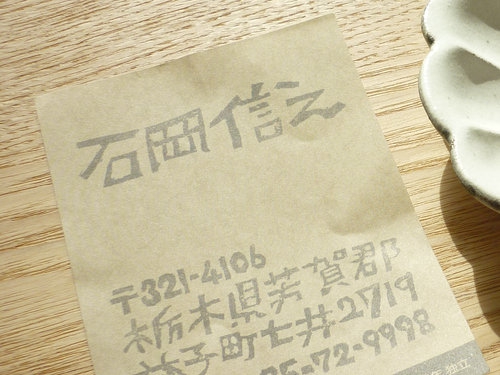 石岡信之
〒321-4106
栃木県芳賀郡
益子町七井2719
85-72-9998
独立